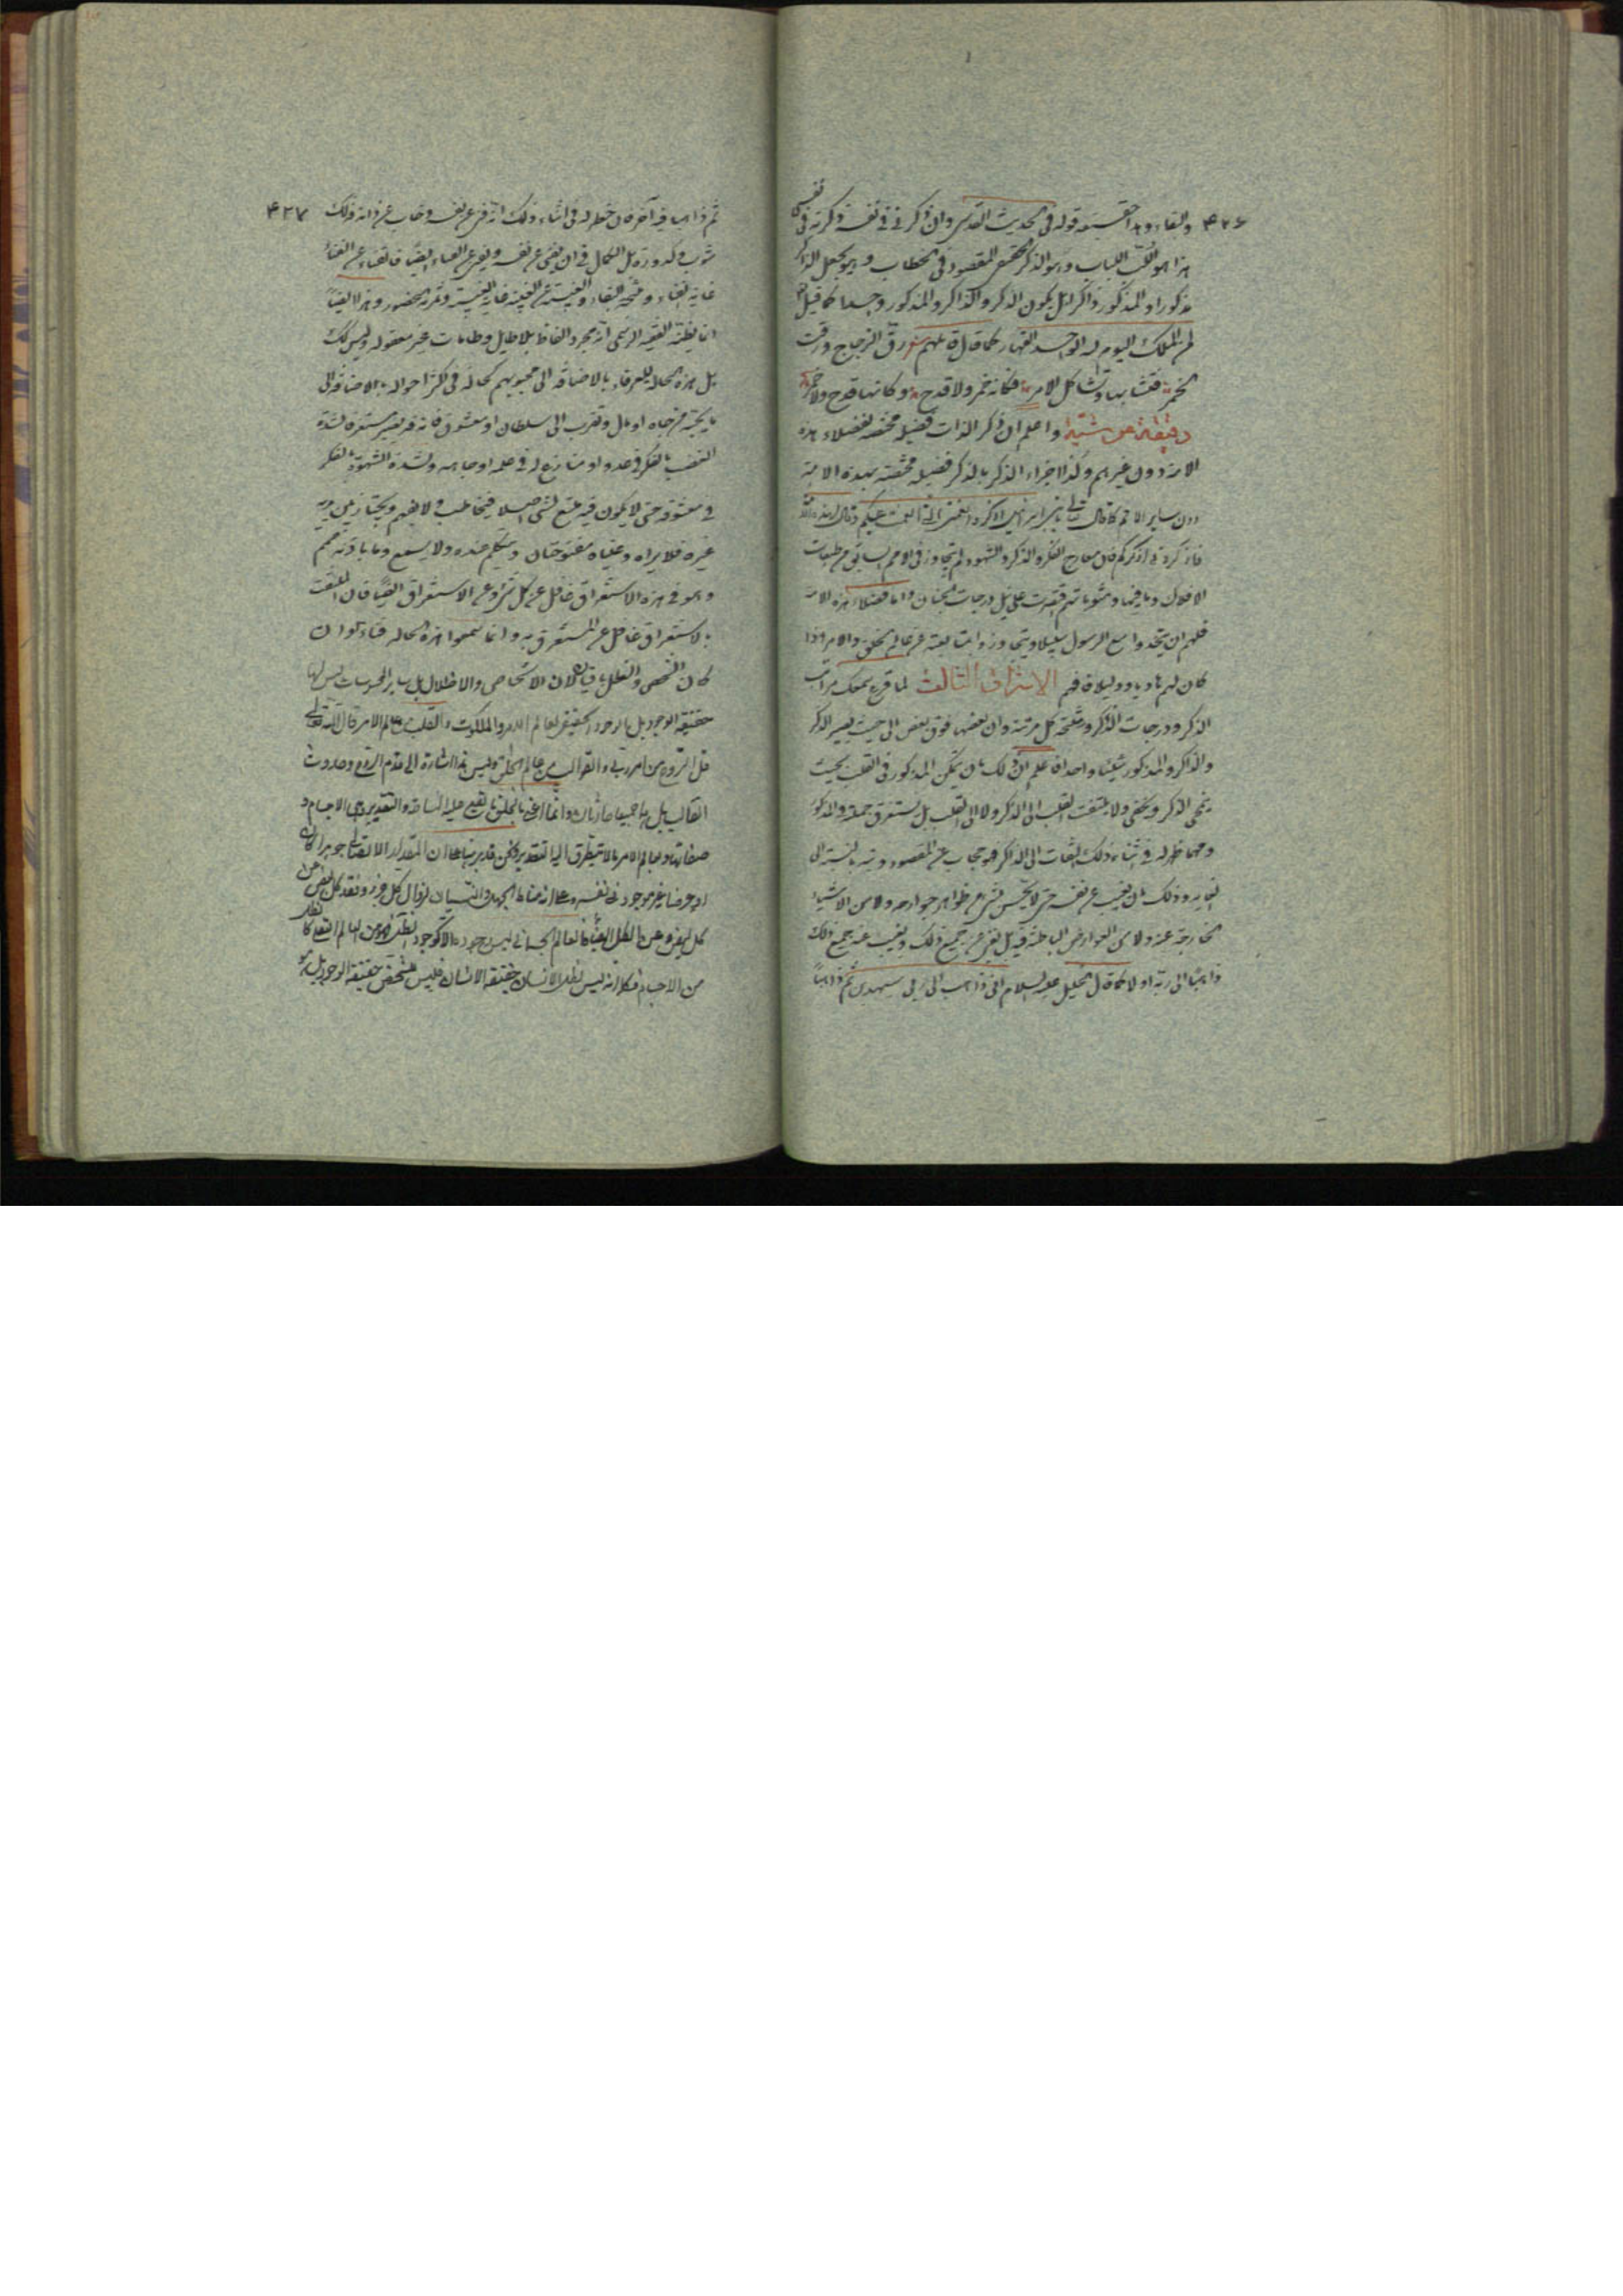 ۴۲۶ والبقاء وبهذا حقيقة قوله في الحديث القدسي وان ذكرني في نفسه ذكرته في نفسي
هذا هو اللب اللباب وهو الذكر الحقيقي المقصود في الخطاب وهو يجعل الذاكر
مذكورا والمذكور ذاكرا بل يكون الذكر والذاكر والمذكور واحدا كما قيل
لمن الملك اليوم لله الواحد القهار كما قال قائلهم شعر رق الزجاج ورقت
الخمر فتشابها وتشاكل الامر فكانه خمر ولا قدح وكانها قدح ولا خمر
دقيقة عرشية واعلم ان ذكر الذات فضيلة مختصة لفضلاء هذه
الامة دون غيرهم وكذا جزاء الذكر بالذكر فضيلة مختصة بهذه الامة
دون ساير الامم كما قال تعالى يا بني اسرائيل اذكروا نعمتي التي انعمت عليكم وقال لهذه الامة
فاذكروني اذكركم فان معارج الفكر والذكر والشهود لم يتجاوز في الامم السابق من طبقات
الافلاك وما فيها ومثوباتهم قصرت على نيل درجات الجنان واما فضلاء هذه الامة
فلهم ان يتخذوا مع الرسول سبيلا ويتجاوزوا بمتابعته عن عالم الخلق والامر اذا
كان لهم هاديا ودليلا فافهم الاشراق الثالث لما قرع سمعك مراتب
الذكر ودرجات الذكر ونتيجة كل مرتبة وان بعضها فوق بعض الى حيث يصير الذكر
والذاكر والمذكور شيئا واحدا فاعلم ان ذلك بان يتمكن المذكور في القلب بحيث
ينمحي الذكر ويخفى ولا يلتفت القلب الى الذكر ولا الى القلب بل يستغرق جملة والمذكور
ومهما ظهر له في اثناء ذلك التفات الى الذاكر فهو حجاب عن المقصود وتنه بالنسبة الى
الغاية وذلك بان يغيب عن نفسه حتى لا يحس بشي من ظواهر جوارحه ولا من الاشياء
الخارجة عنه ولا من العوارض الباطنة فيه بل يفنى عن جميع ذلك ويغيب عنه جميع ذلك
ذاهبا الى ربه اولا كما قال الخليل عليه السلام اني ذاهب الى ربي سيهدين ثم ذاهبا
ثم ذاهبا فيه آخرا فان خطر له في اثناء ذلك انه فنى عن نفسه وغاب عن ذاته فذلك ۴۲۷
شوب وكدورة بل الكمال في ان يفنى عن نفسه ويفنى عن الفناء ايضا فالفناء عن الفناء
غاية الفناء ونتيجة البقاء والغيبة عن الغيبة غاية الغيبة وثمرته الحضور وهذا ايضا
انما يظنه الفقيه الرسمي انه مجرد الفاظ بلا طايل وطامات غير معقولة وليس كذلك
بل هذه الحالة للعرفاء بالاضافة الى محبوبهم كحالة في اكثر احواله بالاضافة الى
ما يحبه من جاه او مال وتقرب الى سلطان او معشوق فانه قد يصير مستغرقا لشدة
الغضب بالفكر في عدو او منازع له في علمه او جاهه ولشدة الشهوة بالفكر
في معشوقه حتى لا يكون فيه متسع لشي اصلا فيخاطب ولا يفهم ويجتاز بين يديه
غيره فلا يراه وعيناه مفتوحتان ويتكلم عنده ولا يسمع وما باذنيه صمم
وهو في هذه الاستغراق غافل عن كل شي وعن الاستغراق ايضا فان الملتفت
بالاستغراق غافل عن المستغرق به وانما سموا هذه الحالة فناء وان
كان الشخص والظل باقيا لان الاشخاص والاظلال بل ساير المحسوسات ليس لها
حقيقة الوجود بل الوجود الحقيقي لعالم الامر والملكوت والقلب من عالم الامر قال الله تعالى
قل الروح من امر ربي والقوالب من عالم الخلق وليس هذا اشارة الى قدم الروح وحدوث
القالب بل هما جميعا حادثان وانما اعني بالخلق ما يقع عليه المساحة والتقدير وهي الاجسام و
صفاتها وبعالم الامر ما لا يتطرق اليه التقدير
او عرضا غير موجود في نفسه
كل
من الاجسام فكما انه ليس لظل الانسان حقيقة الانسان فليس للشخص حقيقة الوجود بل هو